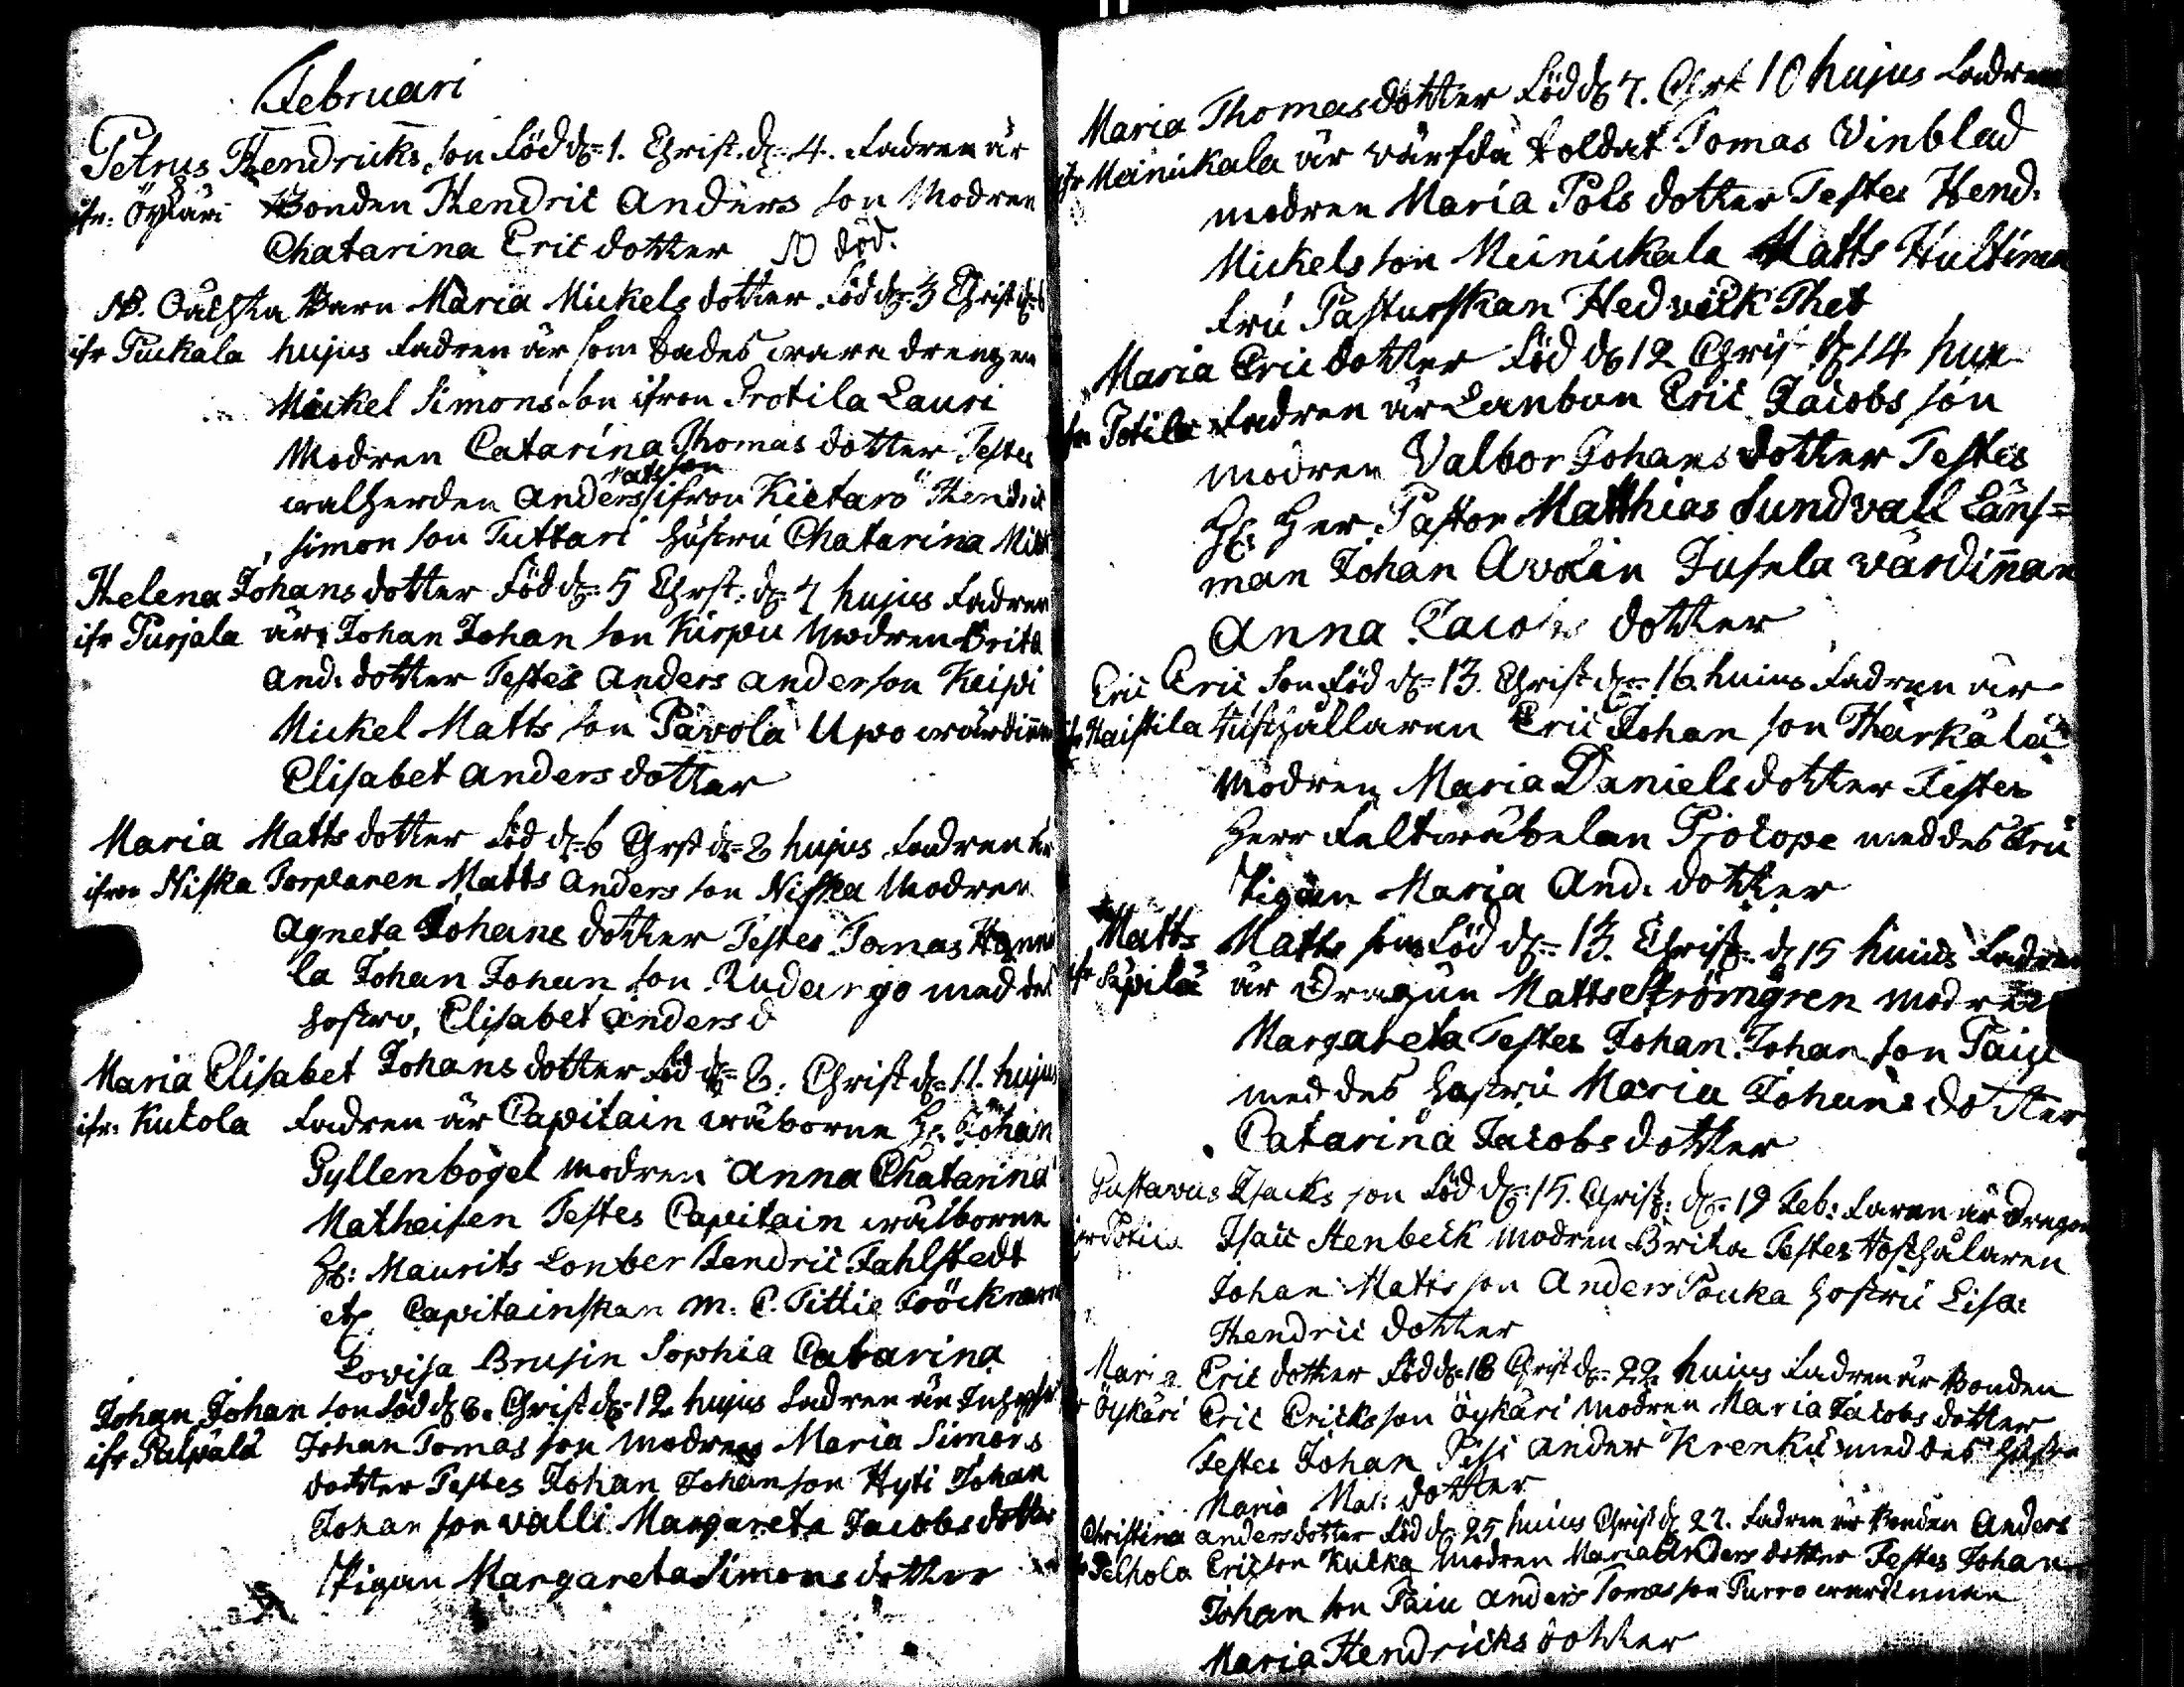 Februari
Petrus Hendricks son Född d: 1. Christ. d: 4. Fadren är
ifr. Öykäri Bonden Hendric Anders son Modren
Chatarina Eric dotter död.
NB. Oächta Barn Maria Mickels dotter Född d: 3 Christ d: 6
ifr Puckala hujus Fadren är som sades wara drengen
Mickel Simons son ifron Protila Lauri
Modren Catarina Thomas dotter Testes
walherden Anders Matsson ifron Kietaro Hendric
Simon son Tuttari hustru Chatarina Mick
Helena Johans dotter Född d: 5 Chrst: d: 7 hujus Fadren
ifr Purjala är Johan Johan son Kirpu Modren Brita
And: dotter Testes Anders Anderson Keipi
Mickel Matts son Pavola Upo wärdinnan
Elisabet Anders dotter
Maria Matts dotter Född d: 6 Chrst d: 8 hujus Fadren är
ifron Niska Torparen Matts Anders son Niska Modren
Agneta Johans dotter Testes Tomas Hannu
la Johan Johan son Rudanjo med des
hostro, Elisabet Anders d
Maria Elisabet Johans dotter född d: 8. Christ d: 11. hujus
ifr: Kutola Fadren är Capitain wälborne Hr. Johan
Gyllenbögel Modren Anna Chatarina
Matheisen Testes Capitain wälborne
Hr: Maurits Hendric Fahlstedt
Capitainskan M: C. Tittie Fröcknarne
Lovisa Brusin Sophia Catarina
Johan Johan son Född d: 8. Christ d: 12 hujus Fadren är
ifr Pulpala Johan Tomas son Modren Maria Simons
dotter Testes Johan Johanson Hyti Johan
Johan son Valli Margareta Jacobs dotter
Pigan Margareta Simons dotter
Maria Thomas dotter Född d: 7. Chrt 10 hujus Fadren
ifr Meinickala är wärfda Soldat Tomas Vinblad
modren Maria Pols dotter Testes Hend:
Mickels son Meinickala Matts Hultinen
Fru Pasturskan Hedvick Thet
Maria Eric dotter Född d: 12 Christ d: 14 huju
ifr Potila Fadren är Lanbon Eric Jacobs son
modren Valbor Johans dotter Testes
Hr Her Pastor Matthias Sundvall Läns=
man Johan Avolin Jusela wärdinnan
Anna Jacobs dotter
Eric Eric Son Född d: 13. Christ d: 16 huius Fadren är
ifr Haistila Husthållaren Eric Johan son Härkälä
Modren Maria Daniels dotter Testes
Herr Feltwäbelan Protope med des Fru
Pigan Maria And: dotter
Matts Matts son Född d: 13. Christ. d: 15 huius Fadren
ifr Säpilä är Dragun Matts Strömgren modren
Margareta Testes Johan Johan son Paiu
med des hustru Maria Johans dotter
Catarina Jacobs dotter
Gustavus Isacks son Född d: 15. Christ: d: 19 Feb: Faren är Dragon
ifr Potila Isaic Stenbeck modren Brita Testes Hosthålaren
Johan Matts son Anders Pouka hostru Lisa:
Hendric dotter
Maria Eric dotter Född d: 18 Christ d: 22 huius Fadren är Bonden
Öykäri Eric Ericks son Öykäri modren Maria Jacobs dotter
Testes Johan Pesi Ander Krenku med des hustru
Maria Mat: dotter
Christina Anders dotter Född d: 25 huius Christ d: 27. Fadren är Bonden Anders
Pelhola Ericson Kucka Modren Maria Anders dotter Testes Johan
Johan son Paiu Anders Tomas son Purro wärdinnan
Maria Hendricks dotter